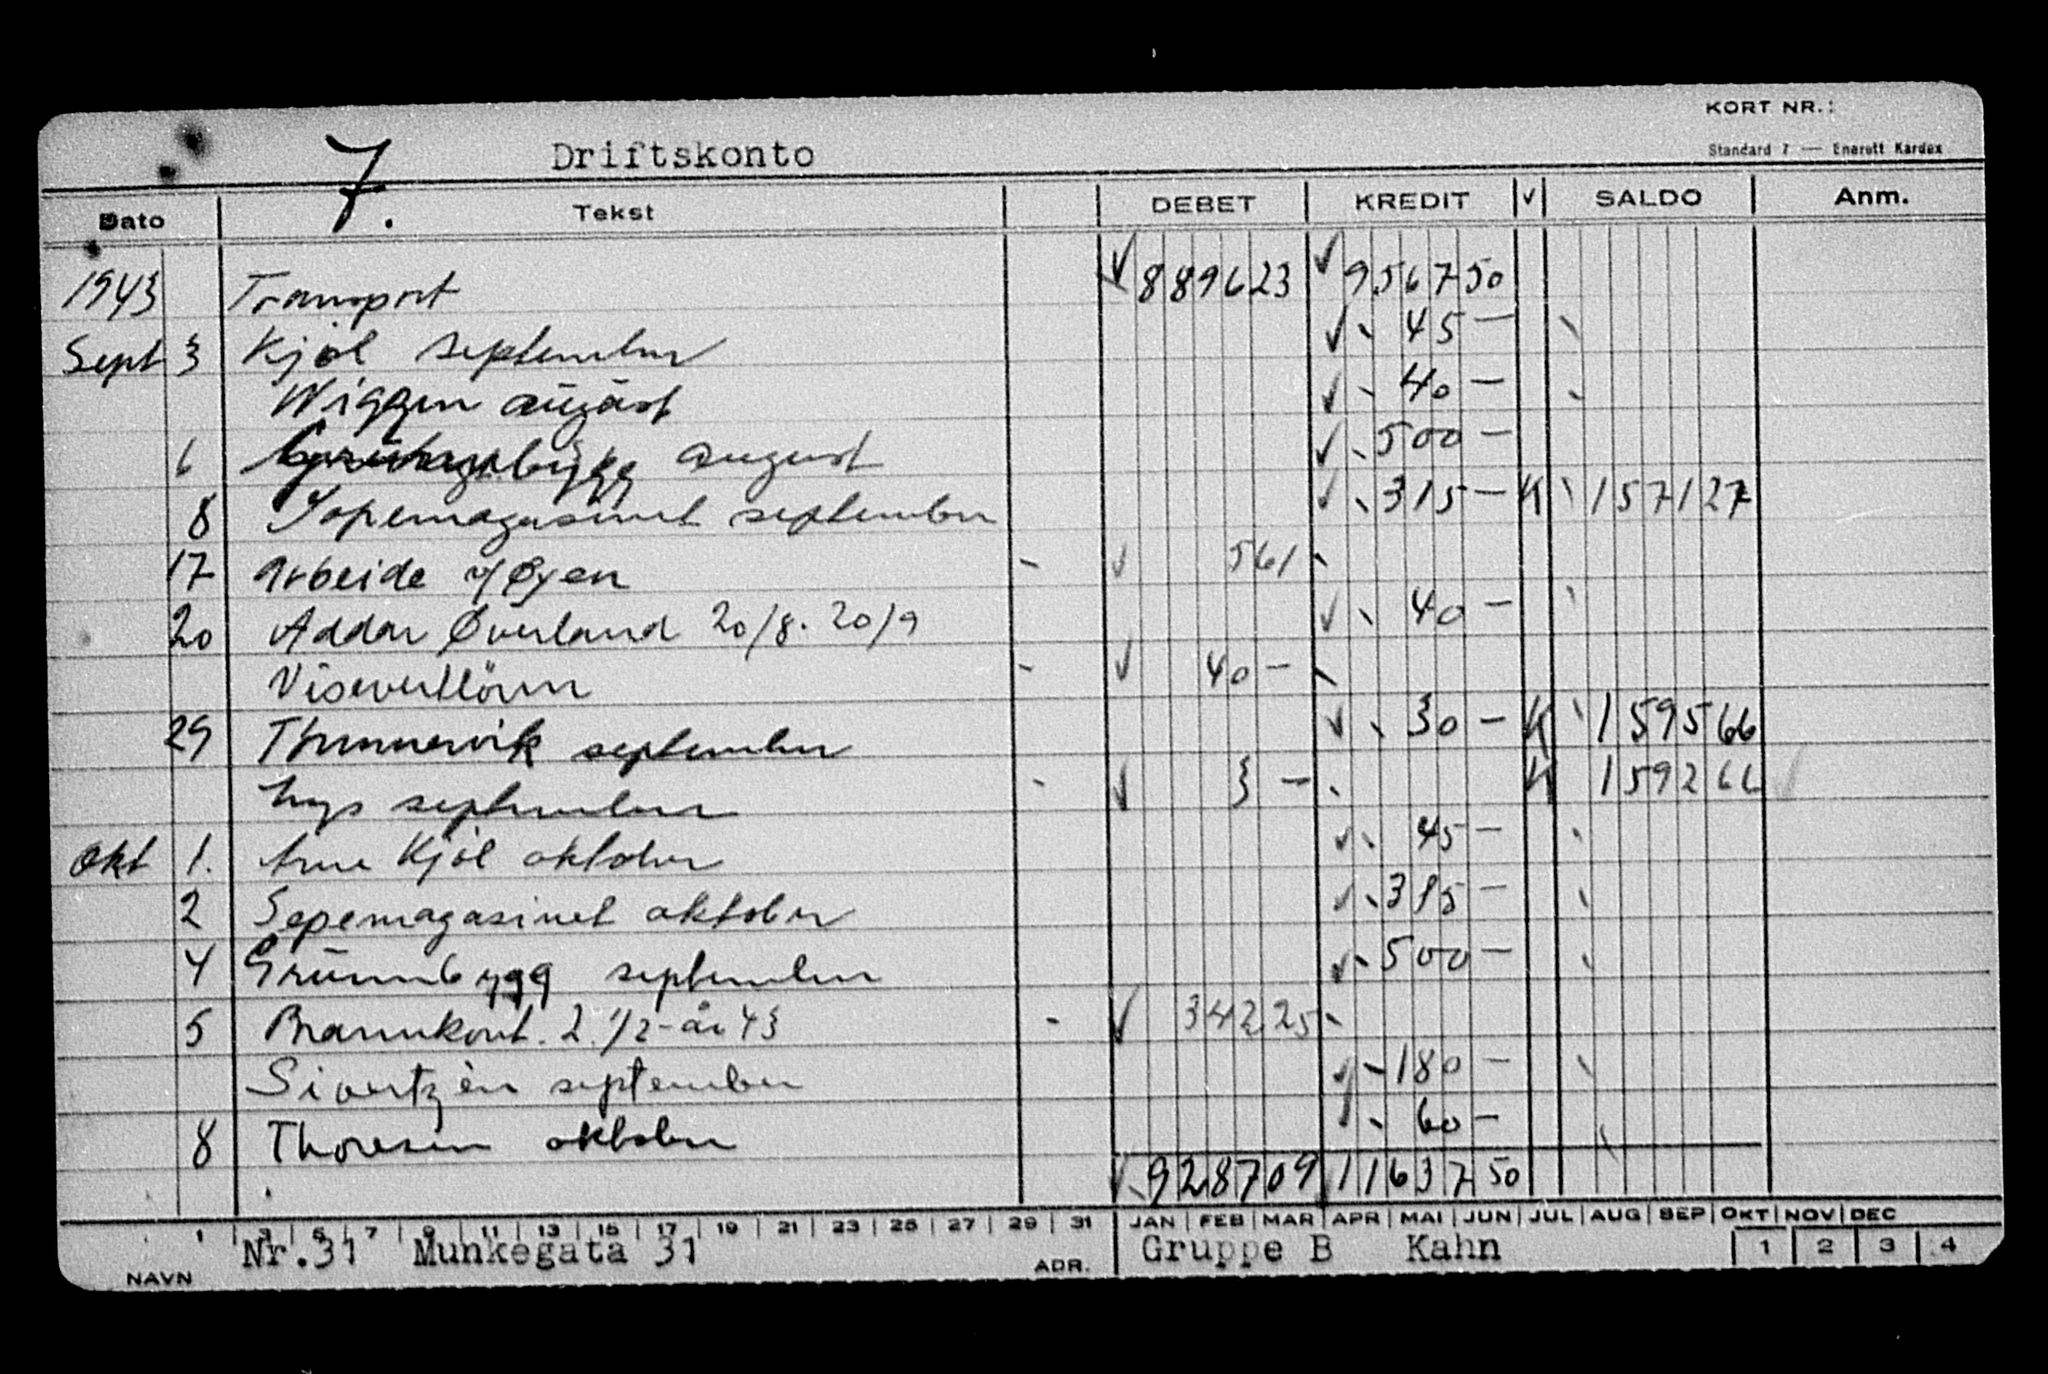 KORT NR.:
7. Driftskonto
Standard 7 — Enerett Kardex
Dato Tekst DEBET KREDIT V SALDO Anm.
1943 Transport 889623 956750
Sept 3 Kjøl september 45 —
Wiggen august 40 —
6 august 500 —
8 Sepemagasinet september 315 — K 157127
17 Arbeide v/Øyen 561
20 Addar Øverland 20/8. 20/9 40 —
40 —
29 Thunnervik september 30 — K 159566
Lys september 3 — K 159266
Okt 1. Arne Kjøl oktober 45 —
2 Sepemagasinet oktober 385 —
4 Grünnbygg september 500 —
5 Brannkont. 2. 1/2-år 43 34225
Sivertzèn september 180 —
8 Thoresen oktober 60 —
928709 1163750
1 3 5 7 9 11 13 15 17 19 21 23 25 27 29 31 JAN FEB MAR APR MAI JUN JUL AUG SEP OKT NOV DEC
NAVN Nr.31 Munkegata 31 ADR. Gruppe B Kahn 1 2 3 4